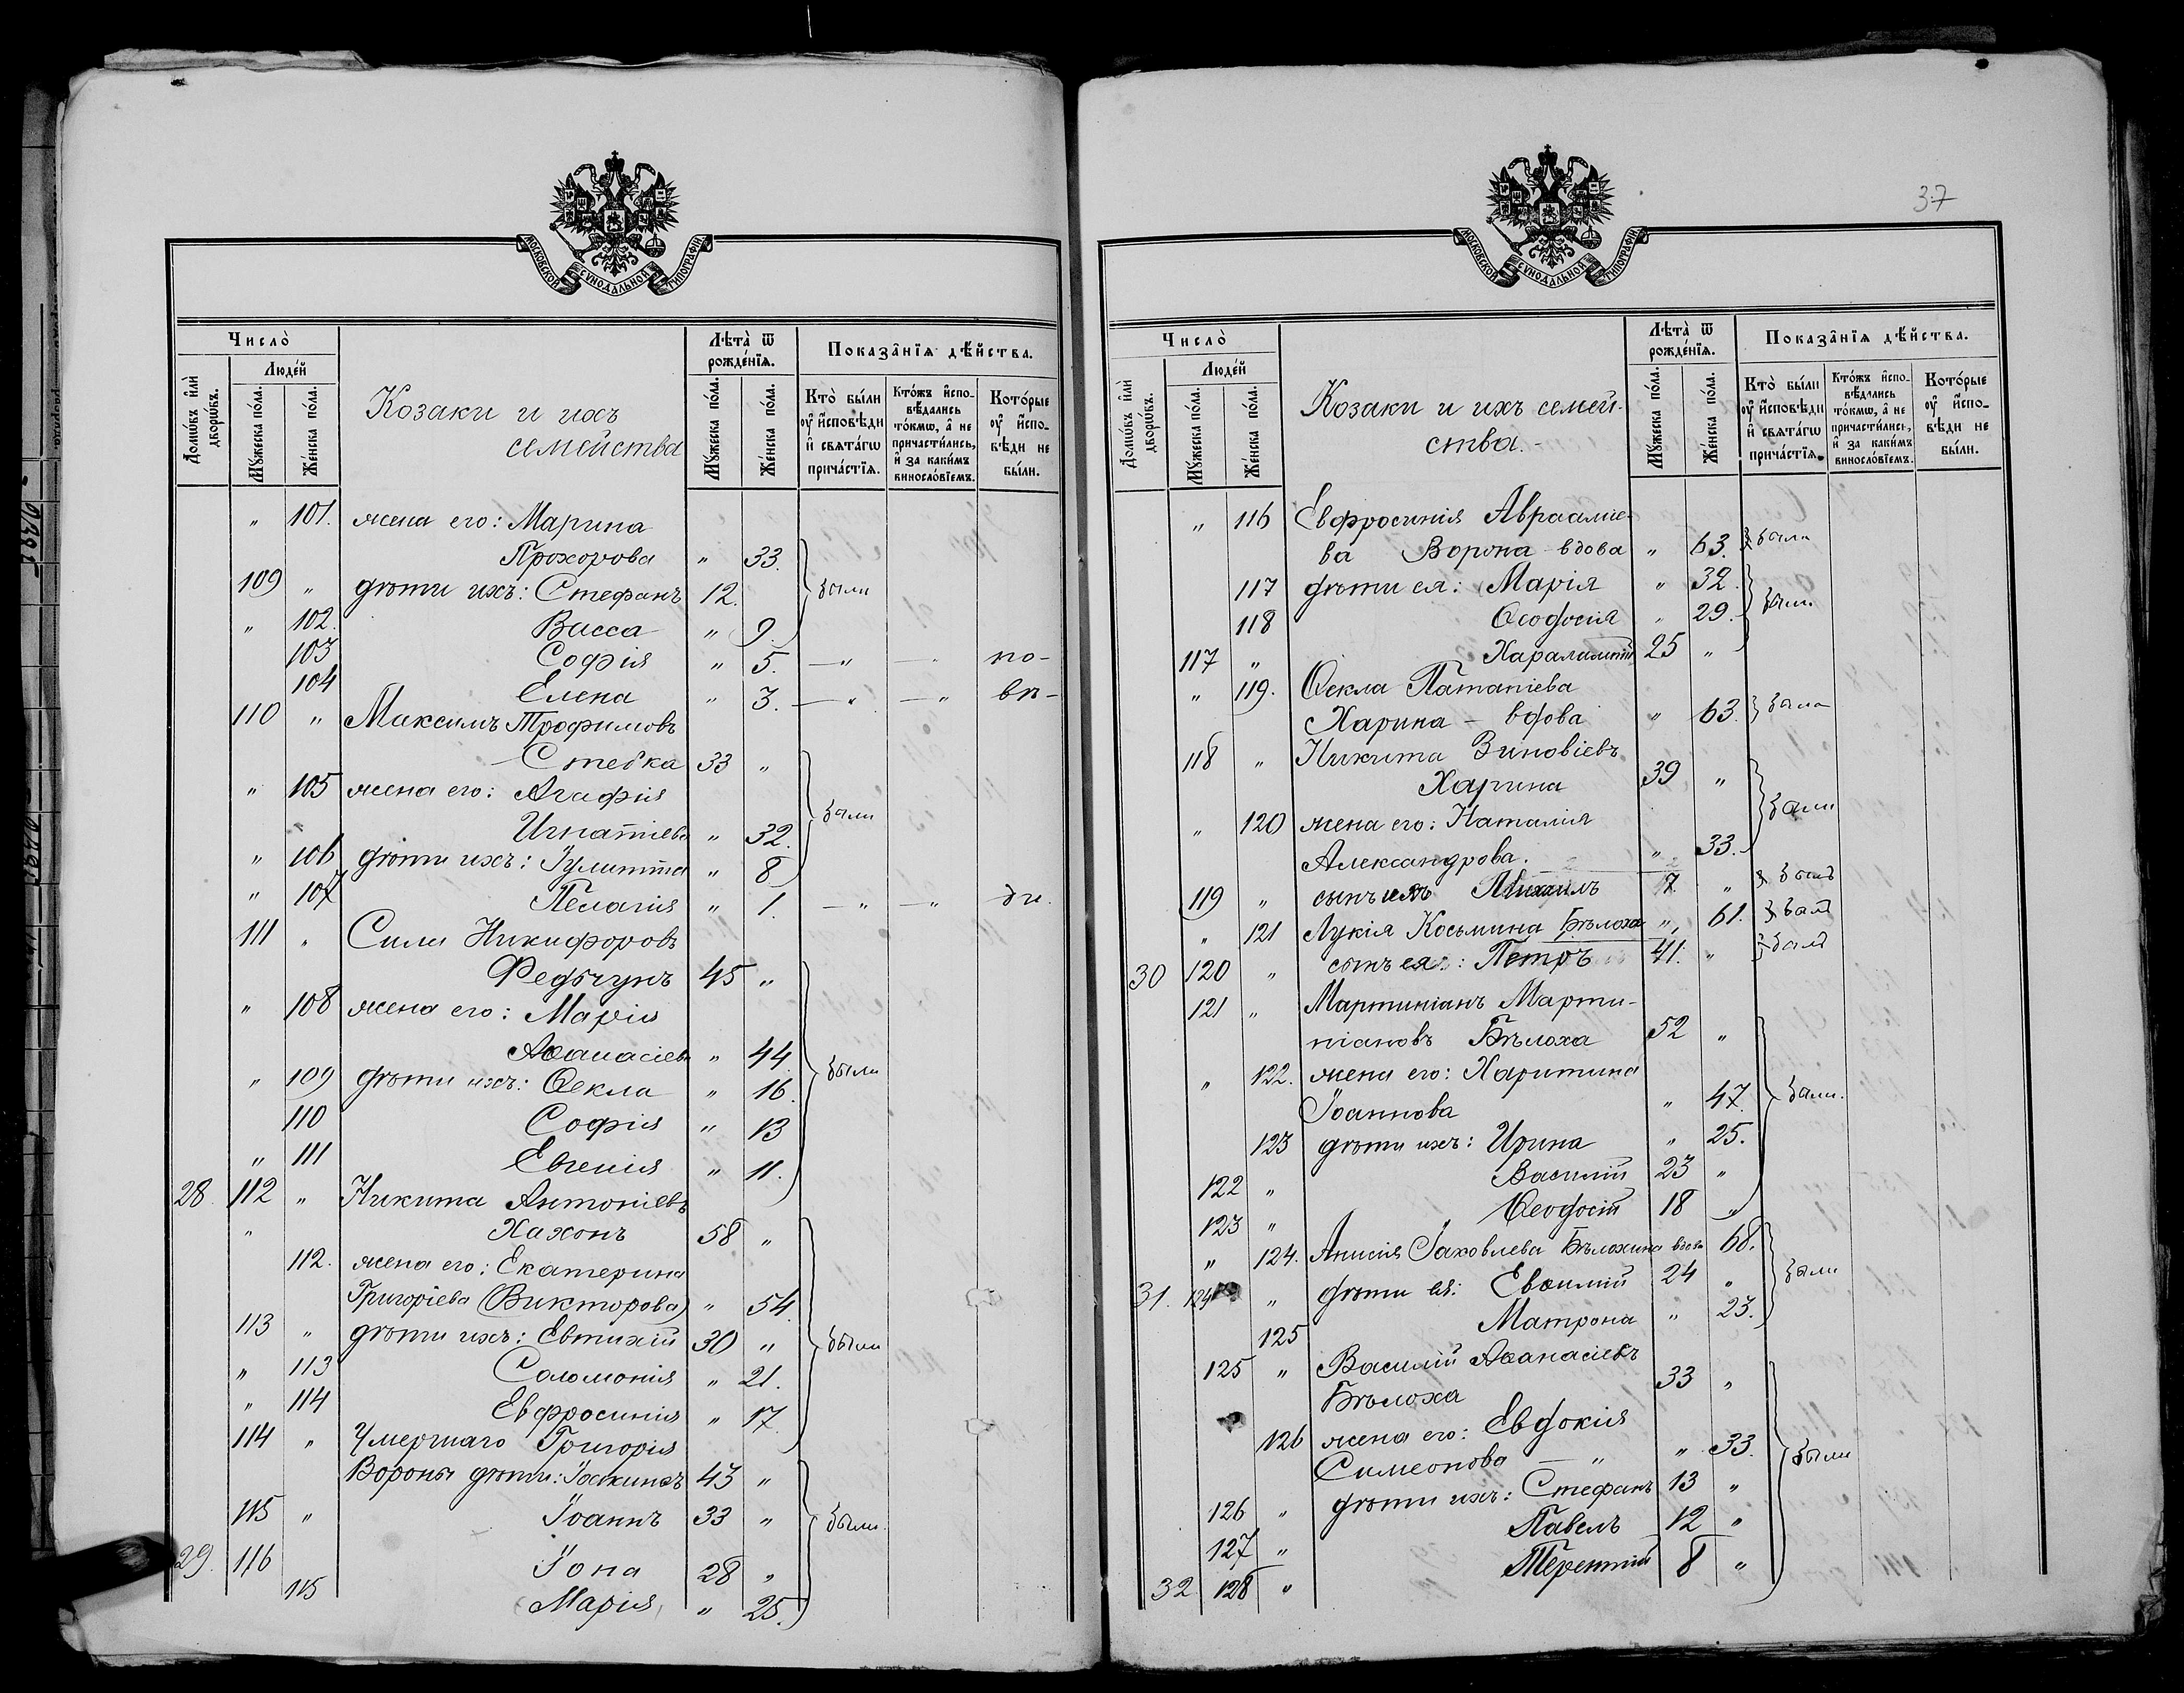 МОСКОВСКОЙ СѴНОДАЛЬНОЙ ТИПОГРАФІИ.
Число̀
Лѣта̀ ѿ рожде́нїя.
Показа̑нїя дѣ́йства.
Домѡ́въ и҆лѝ дворѡ́въ.
Люде́й
Мꙋ́жеска по́ла.
Же́нска по́ла.
Козаки и ихъ
семейства
Мꙋ́жеска по́ла.
Же́нска по́ла.
Кто̀ бы́ли ᲂу҆ и҆сповѣ́ди и҆ свѧта́гѡ прича́стїѧ.
Кто́жъ и҆сповѣ́дались то́кмѡ, а҆ не причасти́лись, и҆ за каки́мъ виносло́вїемъ.
Кото́рые ᲂу҆ и҆сповѣ́ди не бы́ли.
" 101. жена его: Марина
Прохорова " 33.
109 " дѣти ихъ: Стефанъ 12. были
" 102. Васса " 9.
103 Софія " 5. — " — " по-
104 Елена " 3. — " — " вѣ-
110 " Максимъ Трофимовъ
Стебка 33 "
" 105 жена его: Агафія
Игнатіева " 32. были
" 106 дѣти ихъ: Іулитта " 8
" 107 Пелагія " 1. — " — " ди.
111 " Сила Никифоровъ
Федьчунъ 45 "
" 108 жена его: Марія
Аѳанасіева " 44.
" 109 дѣти ихъ: Ѳекла " 16. были
110 Софія " 13
" 111 Евгенія " 11.
28. 112 " Никита Антоніевъ
" Хахонъ 58 "
112. жена его: Екатерина
Григоріева (Викторова) " 54.
113 " дѣти ихъ: Евтихій 30 " были
" 113 Соломонія " 21.
" 114 Евфросинія " 17.
114 " Умершаго Григорія
Вороны дѣти: Іоакимъ 43 "
115 " Іоаннъ 33 " были.
29. 116 Іона 28 "
115 Марія, " 25.
37
МОСКОВСКОЙ СѴНОДАЛЬНОЙ ТИПОГРАФІИ.
Число̀
Лѣта̀ ѿ рожде́нїя.
Показа̑нїя дѣ́йства.
Домѡ́въ и҆лѝ дворѡ́въ.
Люде́й
Мꙋ́жеска по́ла.
Же́нска по́ла.
Козаки и ихъ семей-
ства.
Мꙋ́жеска по́ла.
Же́нска по́ла.
Кто̀ бы́ли ᲂу҆ и҆сповѣ́ди и҆ свѧта́гѡ прича́стїѧ.
Кто́жъ и҆сповѣ́дались то́кмѡ, а҆ не причасти́лись, и҆ за каки́мъ виносло́вїемъ.
Кото́рые ᲂу҆ и҆сповѣ́ди не бы́ли.
" 116 Евфросинія Авраамие-
ва Ворона - вдова " 63. была
117 дѣти ея: Марія " 32.
118 Ѳеодосія " 29. были
117 " Харалампій 25 "
" 119. Ѳекла Патапіева
Харина - вдова " 63. была
118 " Никита Зиновіевъ
Харина 39 "
" 120 жена его: Наталія были
Александрова. " 33.
119 " сынъ ихъ Михаилъ 7 " былъ
" 121 Лукія Косьмина Бѣлоха " 61. была
30 120 " сынъ ея: Петръ 41. " былъ
121 " Мартиніанъ Марти-
ніановъ Бѣлоха 52 "
" 122. жена его: Харитина
Іоаннова " 47. были.
123 дѣти ихъ: Ирина " 25.
122 " Василій 23 "
123 " Ѳеодосій 18 "
" 124. Анисія Іаковлева Бѣлохина вдова 68.
31. 124 " дѣти ея: Евѳимій 24 " были
125 Матрона " 23.
125 " Василій Аѳанасіевъ
Бѣлоха 33 "
126 жена его: Евдокія
Симеонова — " " 33. были
126 " дѣти ихъ: Стефанъ 13 "
127 " Павелъ 12 "
32 128 " Терентій 8 "